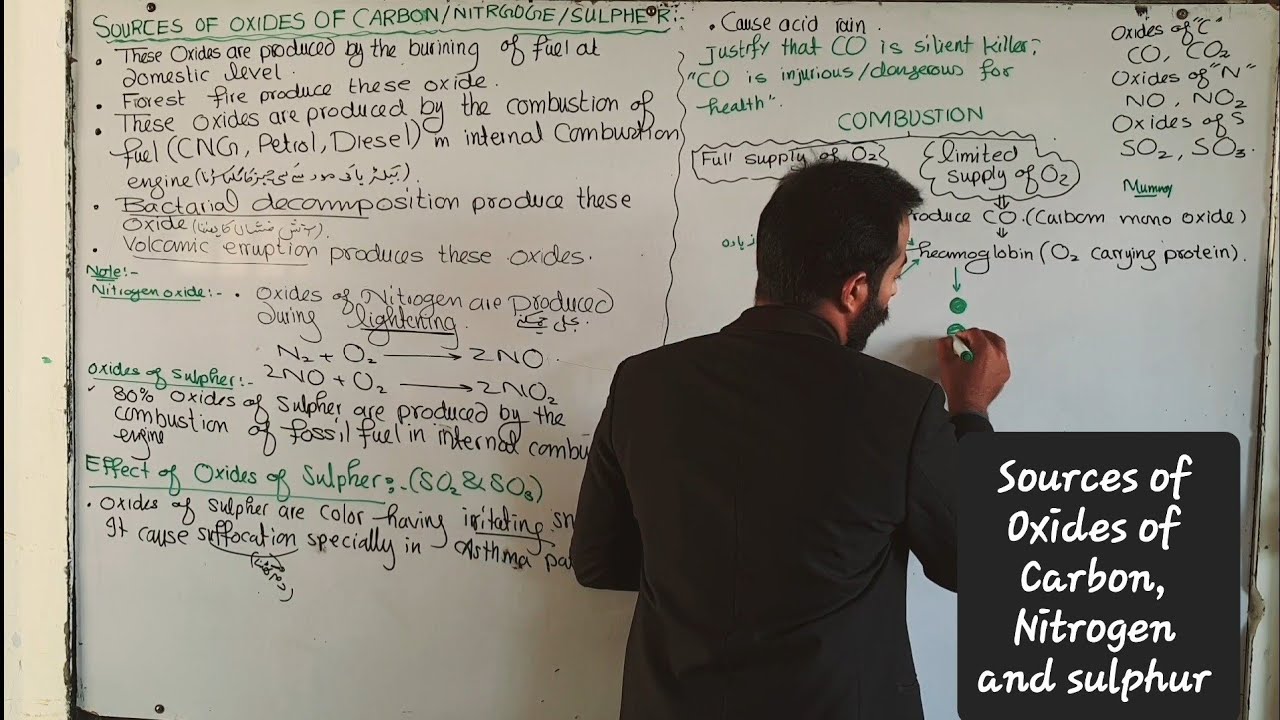 SOURCES OF OXIDES OF CARBON/NITRGOGE/SULPHER:-
• These Oxides are produced by the burining of fuel at
domestic level.
• Forest fire produce these oxide.
• These oxides are produced by the combustion of
fuel (CNG, Petrol, Diesel) in internal Combustion
engine
• Bactarial decomposition produce these
oxide
• Volcanic erruption produces these oxides.
Note:-
Nitrogen oxide:- • Oxides of Nitrogen are produced
during lightening.
N2 + O2 → 2NO
2NO + O2 → 2NO2
Oxides of Sulpher:-
80% oxides of sulpher are produced by the
combustion of fossil fuel in internal combu
engine
Effect of Oxides of Sulpher:-(SO2 & SO3)
• Oxides of sulpher are color having irritating
It cause suffocation specially in Asthma
• Cause acid rain.
Justify that CO is silient killer;
"CO is injurious/dangerous for
health".
COMBUSTION
Full supply of O2
limited
supply of O2
⇓
roduce CO.(Carbom mono oxide)
⇓
زیادہ
heamoglobin (O2 carrying protein).
Oxides of "C"
CO, CO2
Oxides of "N"
NO, NO2
Oxides of S
SO2, SO3.
Sources of
Oxides of
Carbon,
Nitrogen
and sulphur